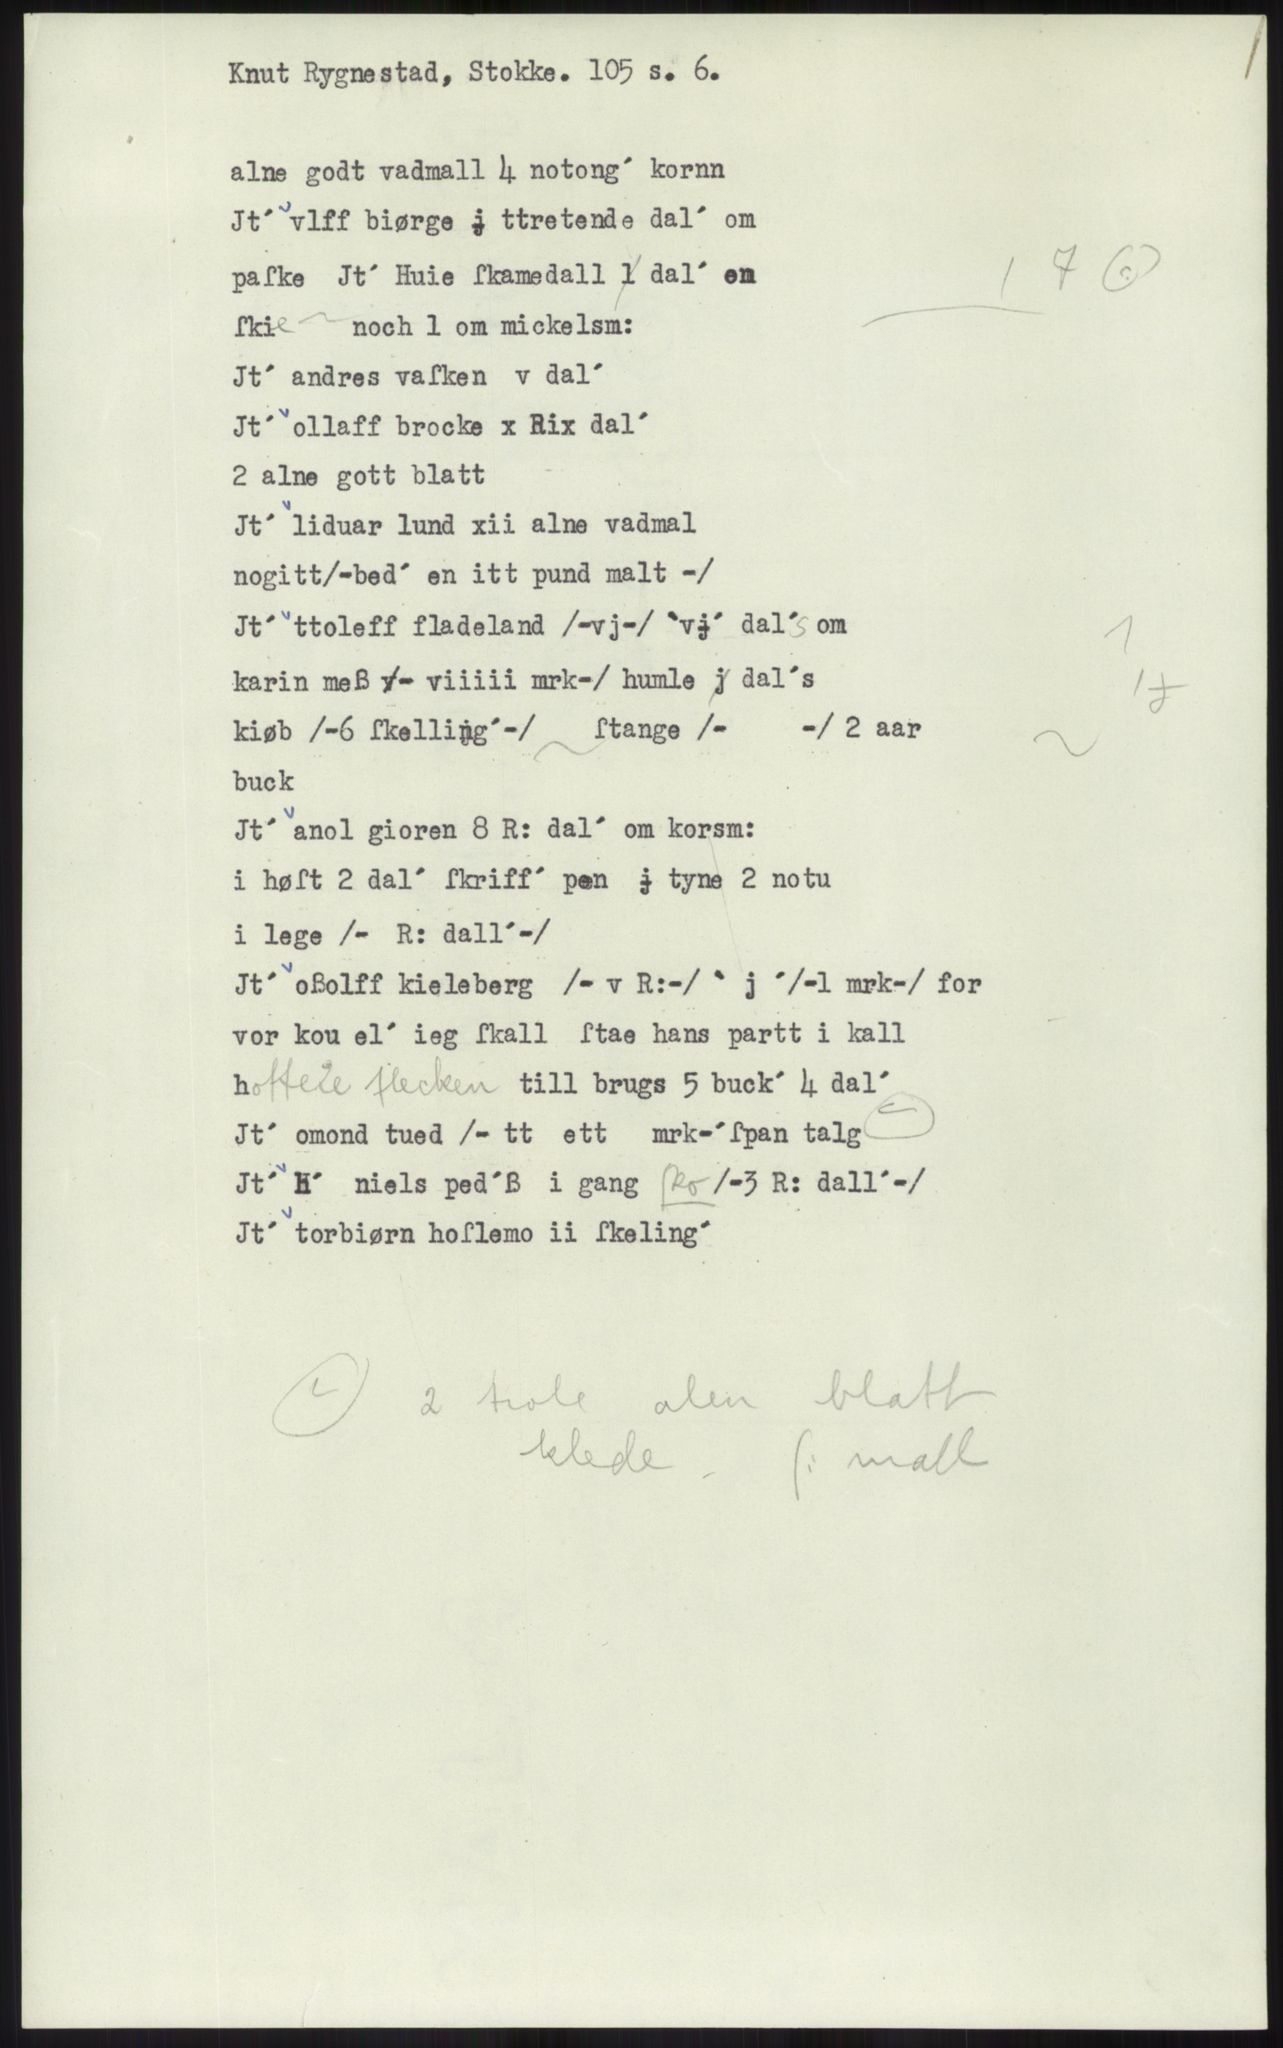 Knut Rygnestad, Stokke. 105 s. 6.
alne godt vadmall 4 notong´ kornn
Jt´ vlff biørge j ttretende dal´ om
paſke Jt´ Huie ſkamedall 1 dal´ en
ſkie noch 1 om mickelsm:
Jt´ andres vaſken v dal´
Jt´ ollaff brocke x Rix dal´
2 alne gott blatt
Jt´ liduar lund xii alne vadmal
nogitt/-bed´ en itt pund malt -/
Jt´ ttoleff fladeland /-vj-/ `vj´ dal´s om
karin meß /- viiiii mrk-/ humle j dal´s
kiøb /-6 ſkelling´-/ ſtange /- -/ 2 aar
buck
Jt´ anol gioren 8 R: dal´ om korsm:
i høſt 2 dal´ ſkriff´ pen j tyne 2 notu
i lege /- R: dall´-/
Jt´ oßolff kieleberg /- v R:-/ ` j ´/-l mrk-/ for
vor kou el´ ieg ſkall ſtae hans partt i kall
till brugs 5 buck´ 4 dal´
Jt´ omond tued /- tt ett mrk-´ſpan talg
Jt´ H´ niels ped´ß i gang ſko /-3 R: dall´-/
Jt´ torbiørn hoſlemo ii ſkeling´
2 alen blatt
klede. mall